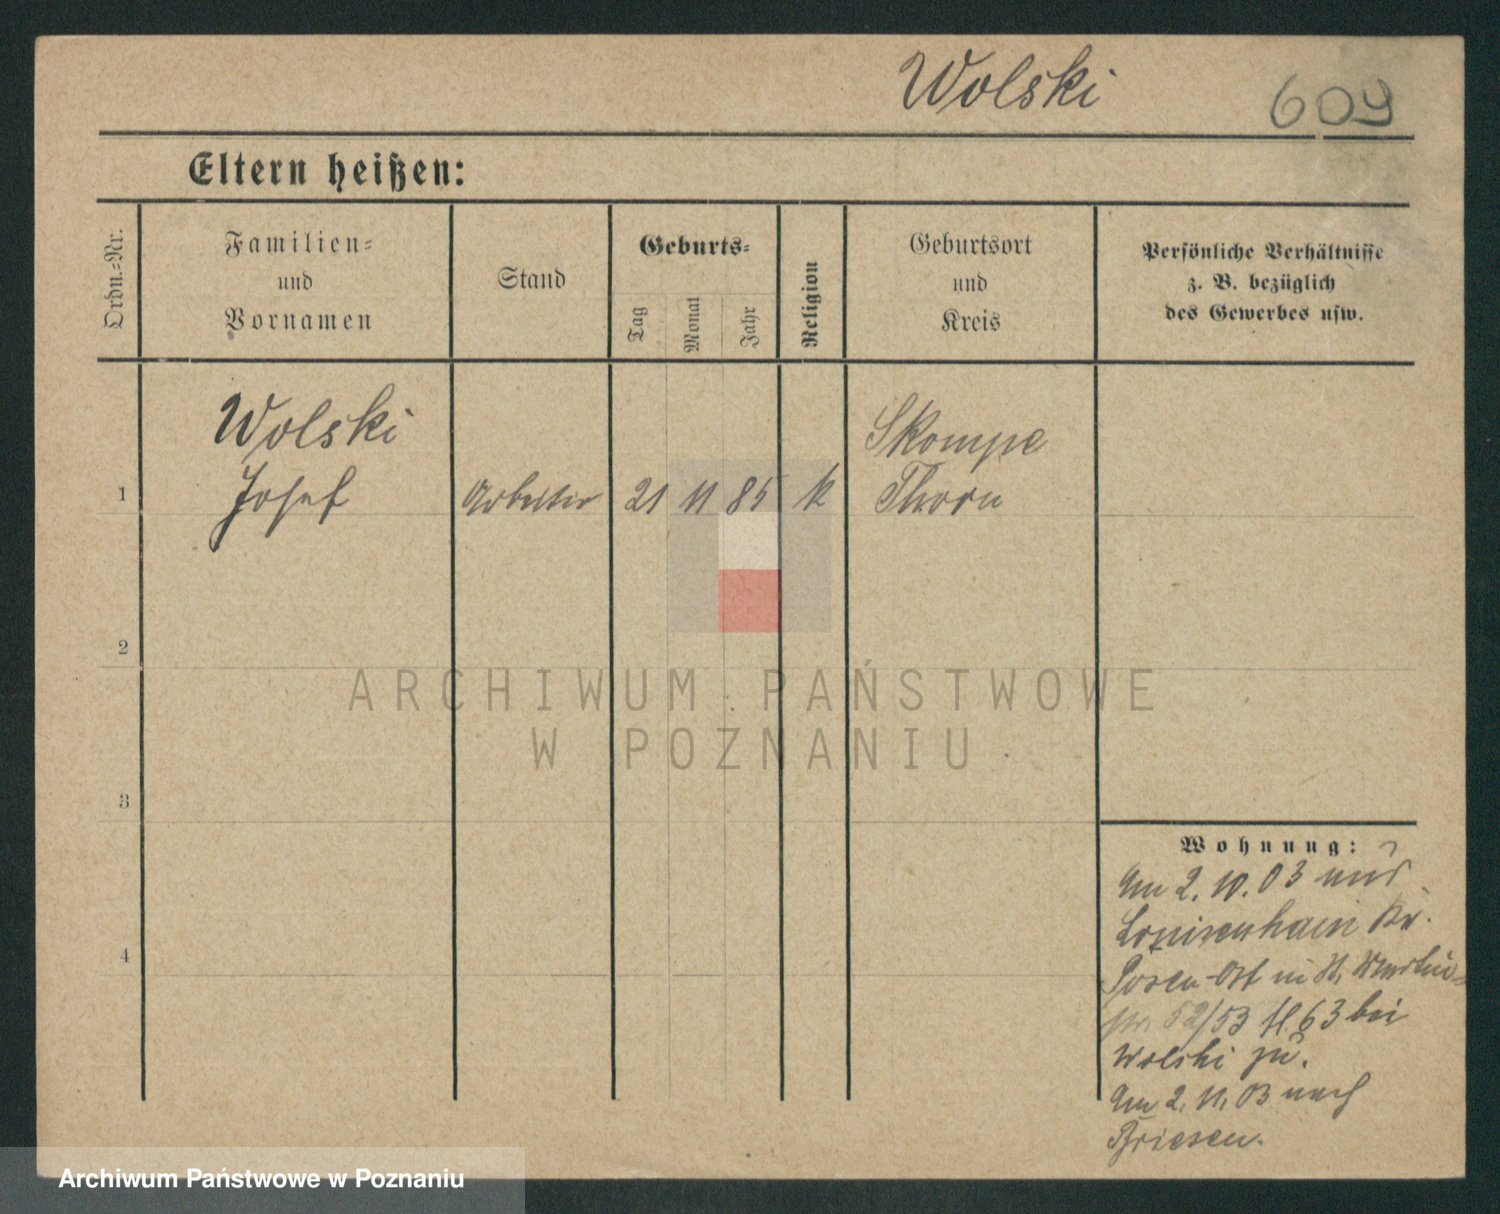 Wolski 609
Eltern heißen:
Ordn.=Nr.
Familien=
und
Vornamen
Stand
Geburts=
Tag
Monat
Jahr
Religion
Geburtsort
und
Kreis
Persönliche Verhältnisse
z. B. bezüglich
des Gewerbes usw.
Wolski
Skompe
1 Josef Arbeiter 21 11 85 k Thorn
2
ARCHIWUM PAŃSTWOWE
W POZNANIU
3
Wohnung:
4
Am 2. 10. 03 aus
Louisenhain Kr.
Posen-Ost in St. Martin=
str. 52/53 H. 63 bei
Wolski zu.
Am 2. 11. 03 nach
Briesen.
Archiwum Państwowe w Poznaniu